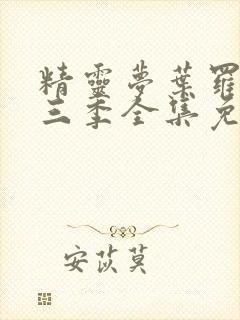 精靈夢葉羅
三季全集免
安苡莫